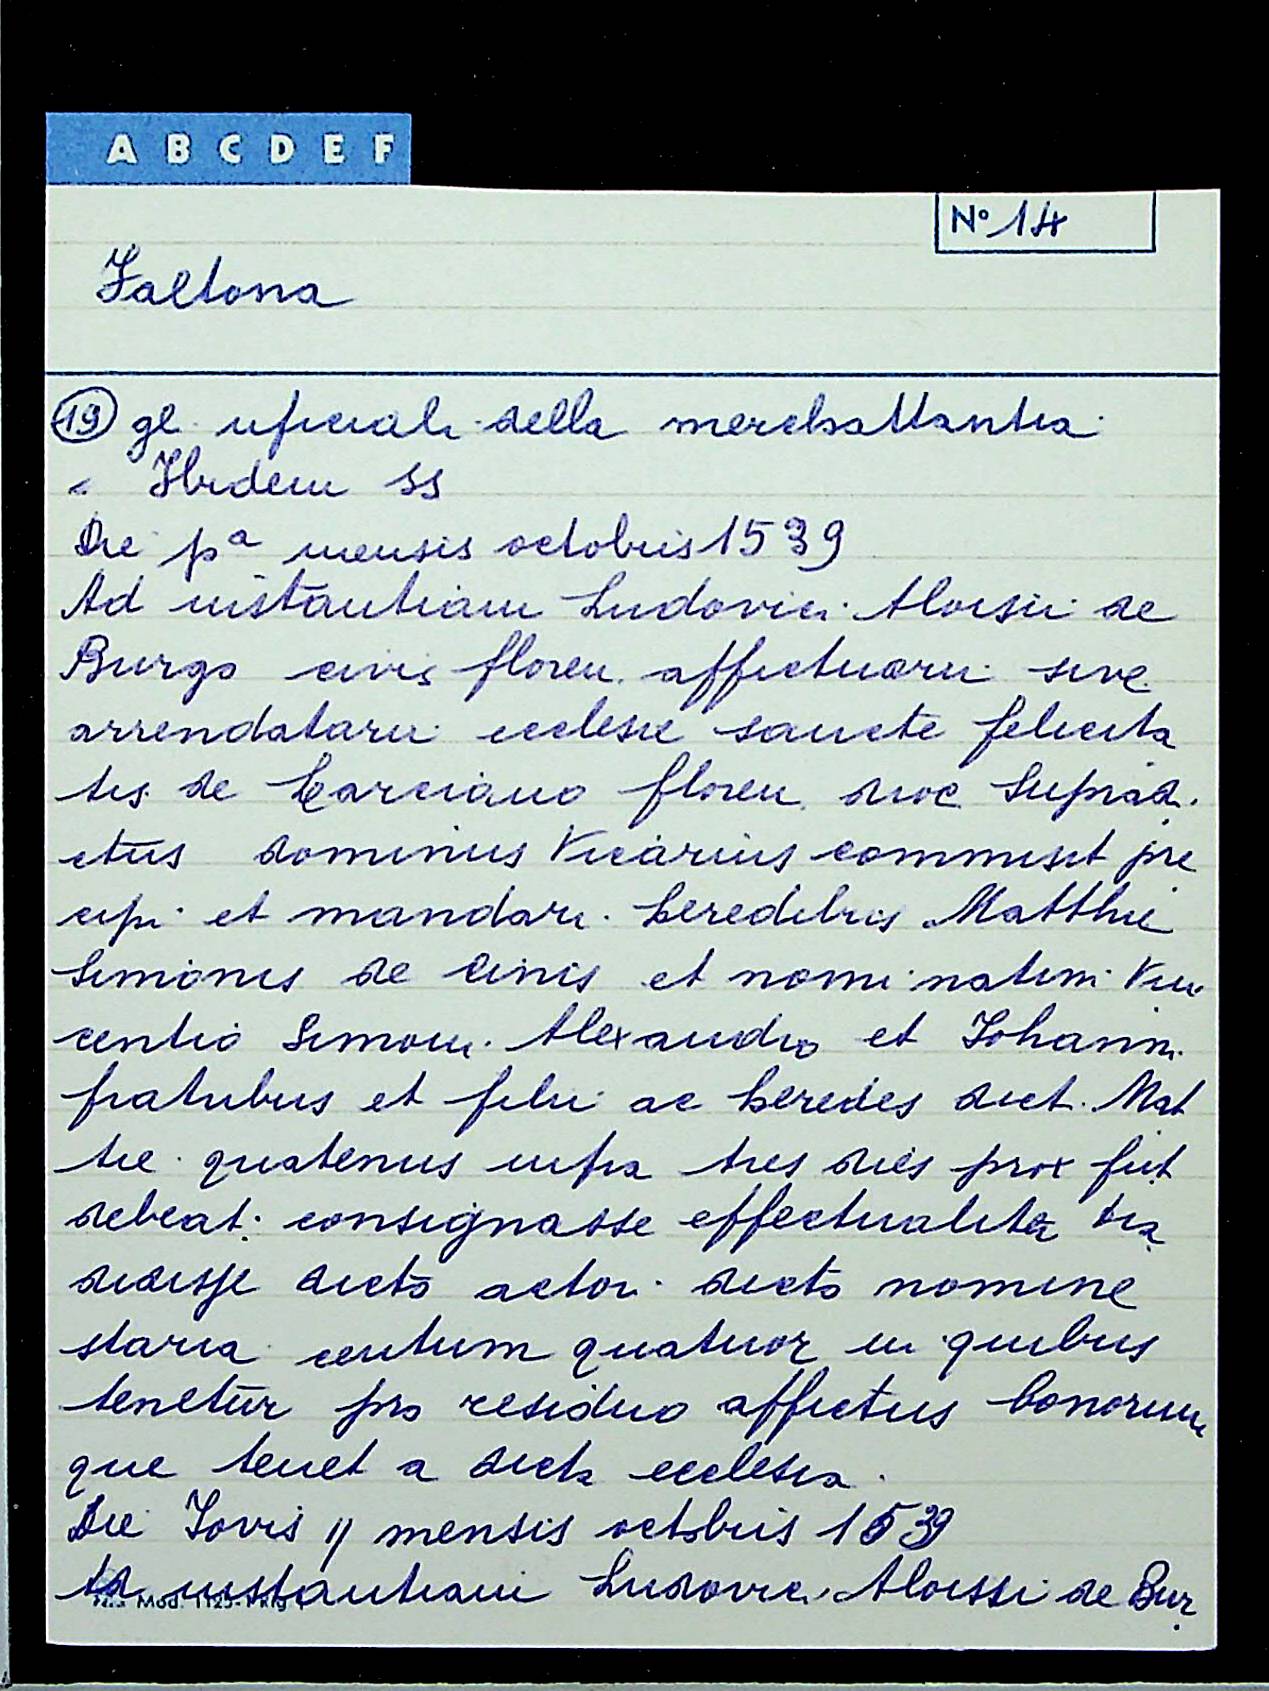 A B C D E F
N° 14
Faltona
19 gl uficiali della merchattantia
Ibidem ss
Die pa mensis octobris 1539
Ad instantiam Ludovici Aloisii de
Burgo civis floren. affictuarii sive
arrendatarii ecclesie sancte felicita
tis de Larciano floren. dioc Suprad.
ctus dominus Vicarius commisit pre
cipi et mandari heredibus Matthie
Simonis de Cinis et nominatim Vin
centio Simoni Alexandro et Johanni
fratribus et filii ac heredes dict. Mat
tie quatenus infra tres dies prox fut
debeat. consignasse effectualiter tra
didisse dicto actori dicto nomine
staria centum quatuor in quibus
tenetur pro residuo affictus bonorum
que tenet a dicta ecclesia.
Die Jovis 11 mensis octobris 1539
Ad instantiam Ludovici Aloissi de Bur